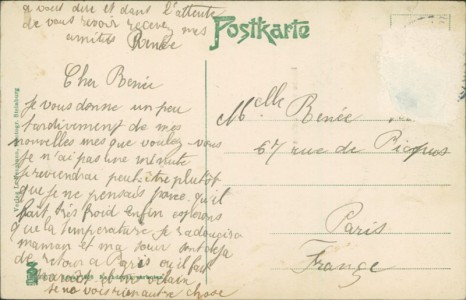 a vous dire et dans l'attente
de vous revoir recevez mes
amitiés Renée
Postkarte
Cher Renée
Je vous donne un peu
tardivement de mes
nouvelles mes que voulez-vous
je n'ai pas une minute
je reviendrai peut-être plutôt
que je ne pensais parce qu'il
fait très froid enfin espérons
que la température se radoucira
maman et ma sœur sont déjà
de retour à Paris où il fait
aussi très vilain
je ne vois rien autre chose
Melle Renée
67 rue de Picpus
Paris
France